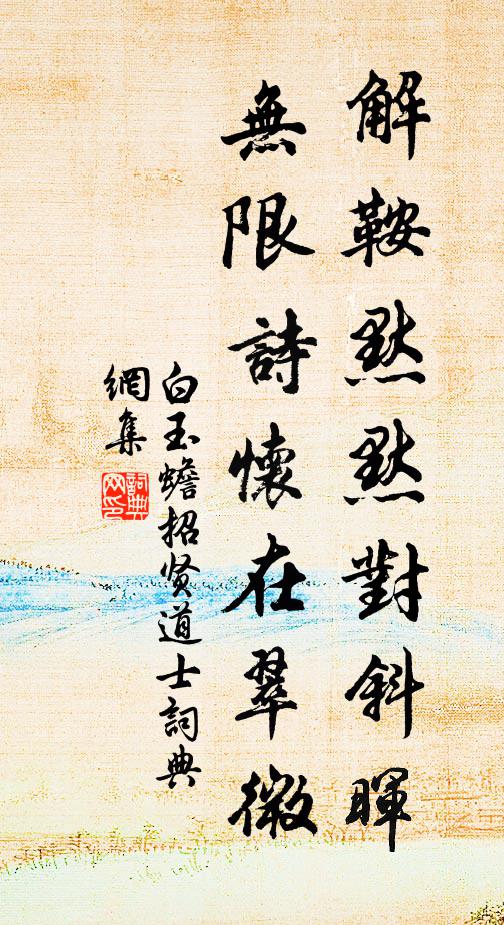 解鞍默默對斜暉
無限詩懷在翠微
白玉蟾招贤道士詞典
網集
詞典
网印